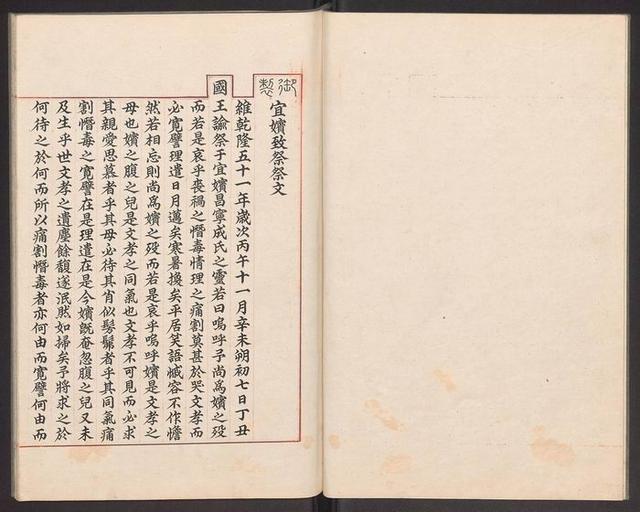 御製
宜嬪致祭祭文
維乾隆五十一年歲次丙午十一月辛未朔初七日丁丑
國
王諭祭于宜嬪昌寧成氏之靈若曰嗚呼予尚爲嬪之歿
而若是哀乎喪禍之憯毒情理之痛割莫甚於哭文孝而
必寬譬理遣日月邁矣寒暑換矣平居笑語慽容不作憺
然若相忘則尚爲嬪之歿而若是哀乎嗚呼嬪是文孝之
母也嬪之腹之兒是文孝之同氣也文孝不可見而必求
其親愛思慕者乎其母必待其肖似髣髴者乎其同氣痛
割憯毒之寬譬在是理遣在是今嬪旣奄忽腹之兒又未
及生乎世文孝之遺塵餘馥遂泯然如掃矣予將求之於
何待之於何而所以痛割憯毒者亦何由而寬譬何由而